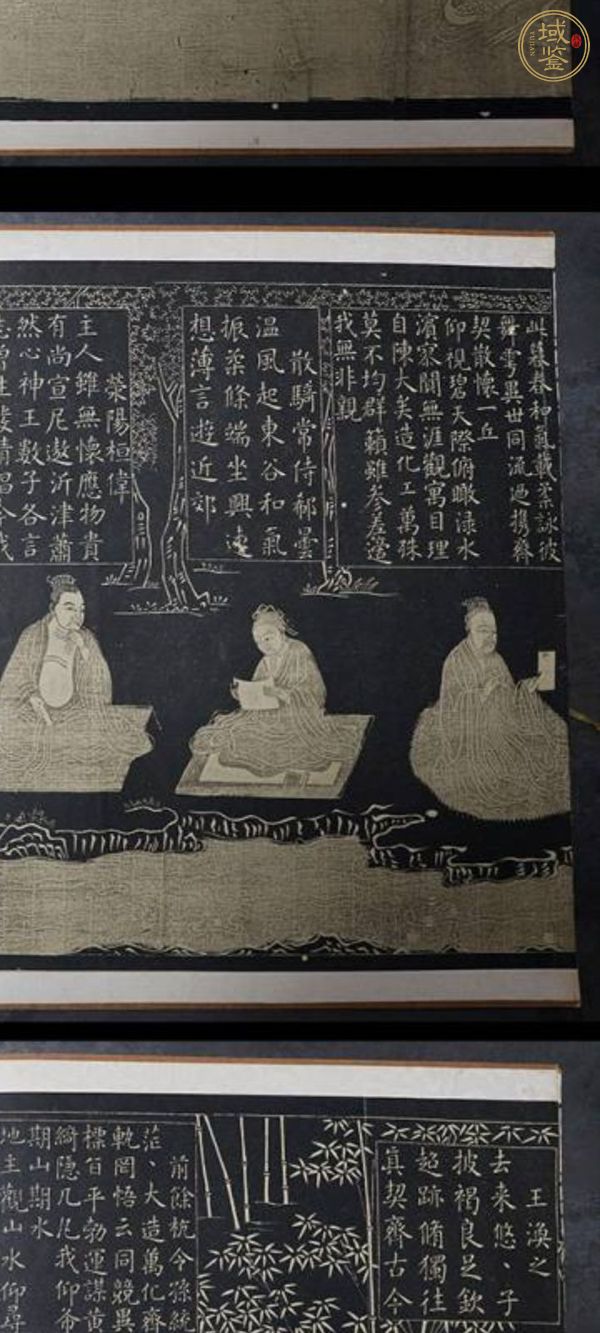 域鉴
YUJIAN
此暮春和氣載柔詠彼
舞雩異世同流迺携齊
契散懷一丘
仰視碧天際俯瞰淥水
濱寥闃無涯觀寓目理
自陳大矣造化工萬殊
莫不均群籟雖參差適
我無非親
散騎常侍郗曇
温風起東谷和氣
振柔條端坐興遠
想薄言遊近郊
滎陽桓偉
主人雖無懷應物貴
有尚宣尼遨沂津蕭
然心神王數子各言
王渙之
去來悠、子
披褐良足欽
超跡脩獨往
真契齊古今
前餘杭令孫統
茫、大造萬化齊
軌罔悟玄同競異
標旨平勃運謀黄
綺隱几凡我仰希
期山期水
地主觀山水仰尋